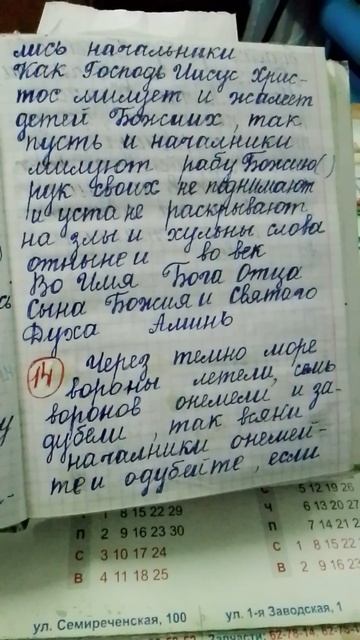 лись начальники
Как Господь Иисус Хрис-
тос милует и жалеет
детей Божиих, так
пусть и началники
милуют рабу Божию()
рук своих не поднимают
и уста не раскрывают
на злы и хульны слова
отныне и во век
Во Имя Бога Отца
Сына Божия и Святаго
Духа Аминь
14 Через темно море
вороны летели, семь
воронов онемели и за-
дубели, так всяки
началники онемей-
те и одубейте, если
5 12 19 26
С 1 8 15 22 29 Ч 6 13 20 27
П 2 9 16 23 30 П 7 14 21
С 3 10 17 24 С 1 8 15 22
В 4 11 18 25 В 2 9 16 23
ул. Семиреченская, 100 ул. 1-я Заводская, 1
Запчасти